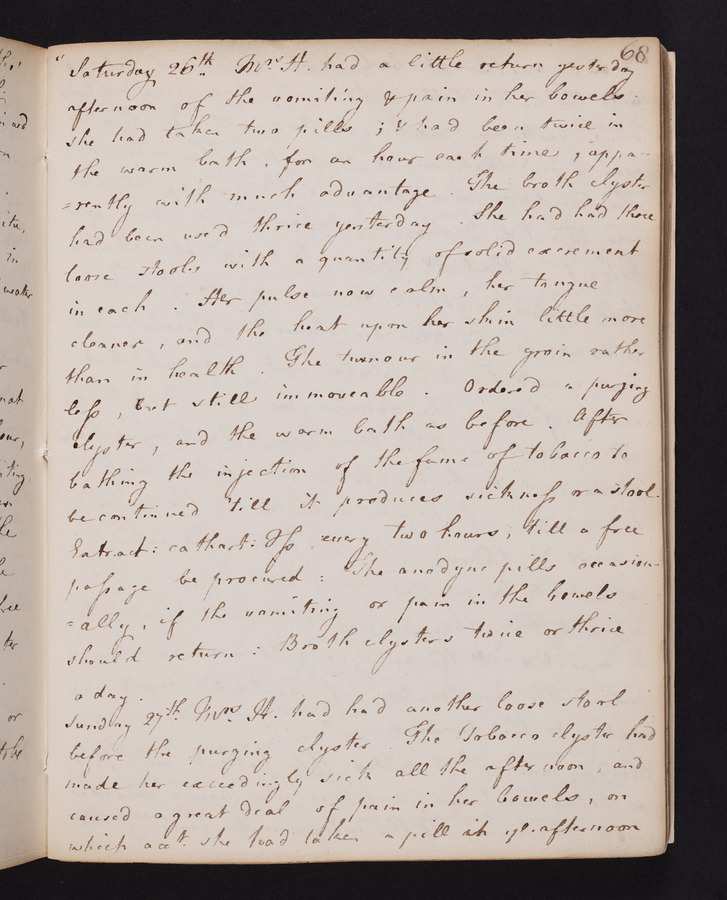 68
" Saturday 26th. Mrs H. had a little return yesterday
afternoon of the vomiting & pain in her bowels.
she had taken two pills ; & had been twice in
the warm bath, for an hour each time, appa-
=rently with much advantage. The broth clyster
had been used thrice yesterday. She had had three
loose stools with a quantity of solid excrement
in each. Her pulse now calm, her tongue
cleaner, and the heat upon her skin little more
than in health. The tumour in the groin rather
less, but still immoveable. Ordered a purging
clyster, and the warm bath as before. After
bathing the injection of the fume of tobacco to
be continued 'till it produces sickness or a stool.
Extract: cathart: ʒss every two hours, till a free
passage be procured : The anodyne pills occasion-
=ally, if the vomiting or pain in the bowels
should return : Broth clysters twice or thrice
a day.
Sunday 27th. Mrs. H. had had another loose stool
before the purging clyster. The Tobacco clyster had
made her exceedingly sick all the afternoon, and
caused a great deal of pain in her bowels, on
which acct. she had taken a pill in ye. afternoon